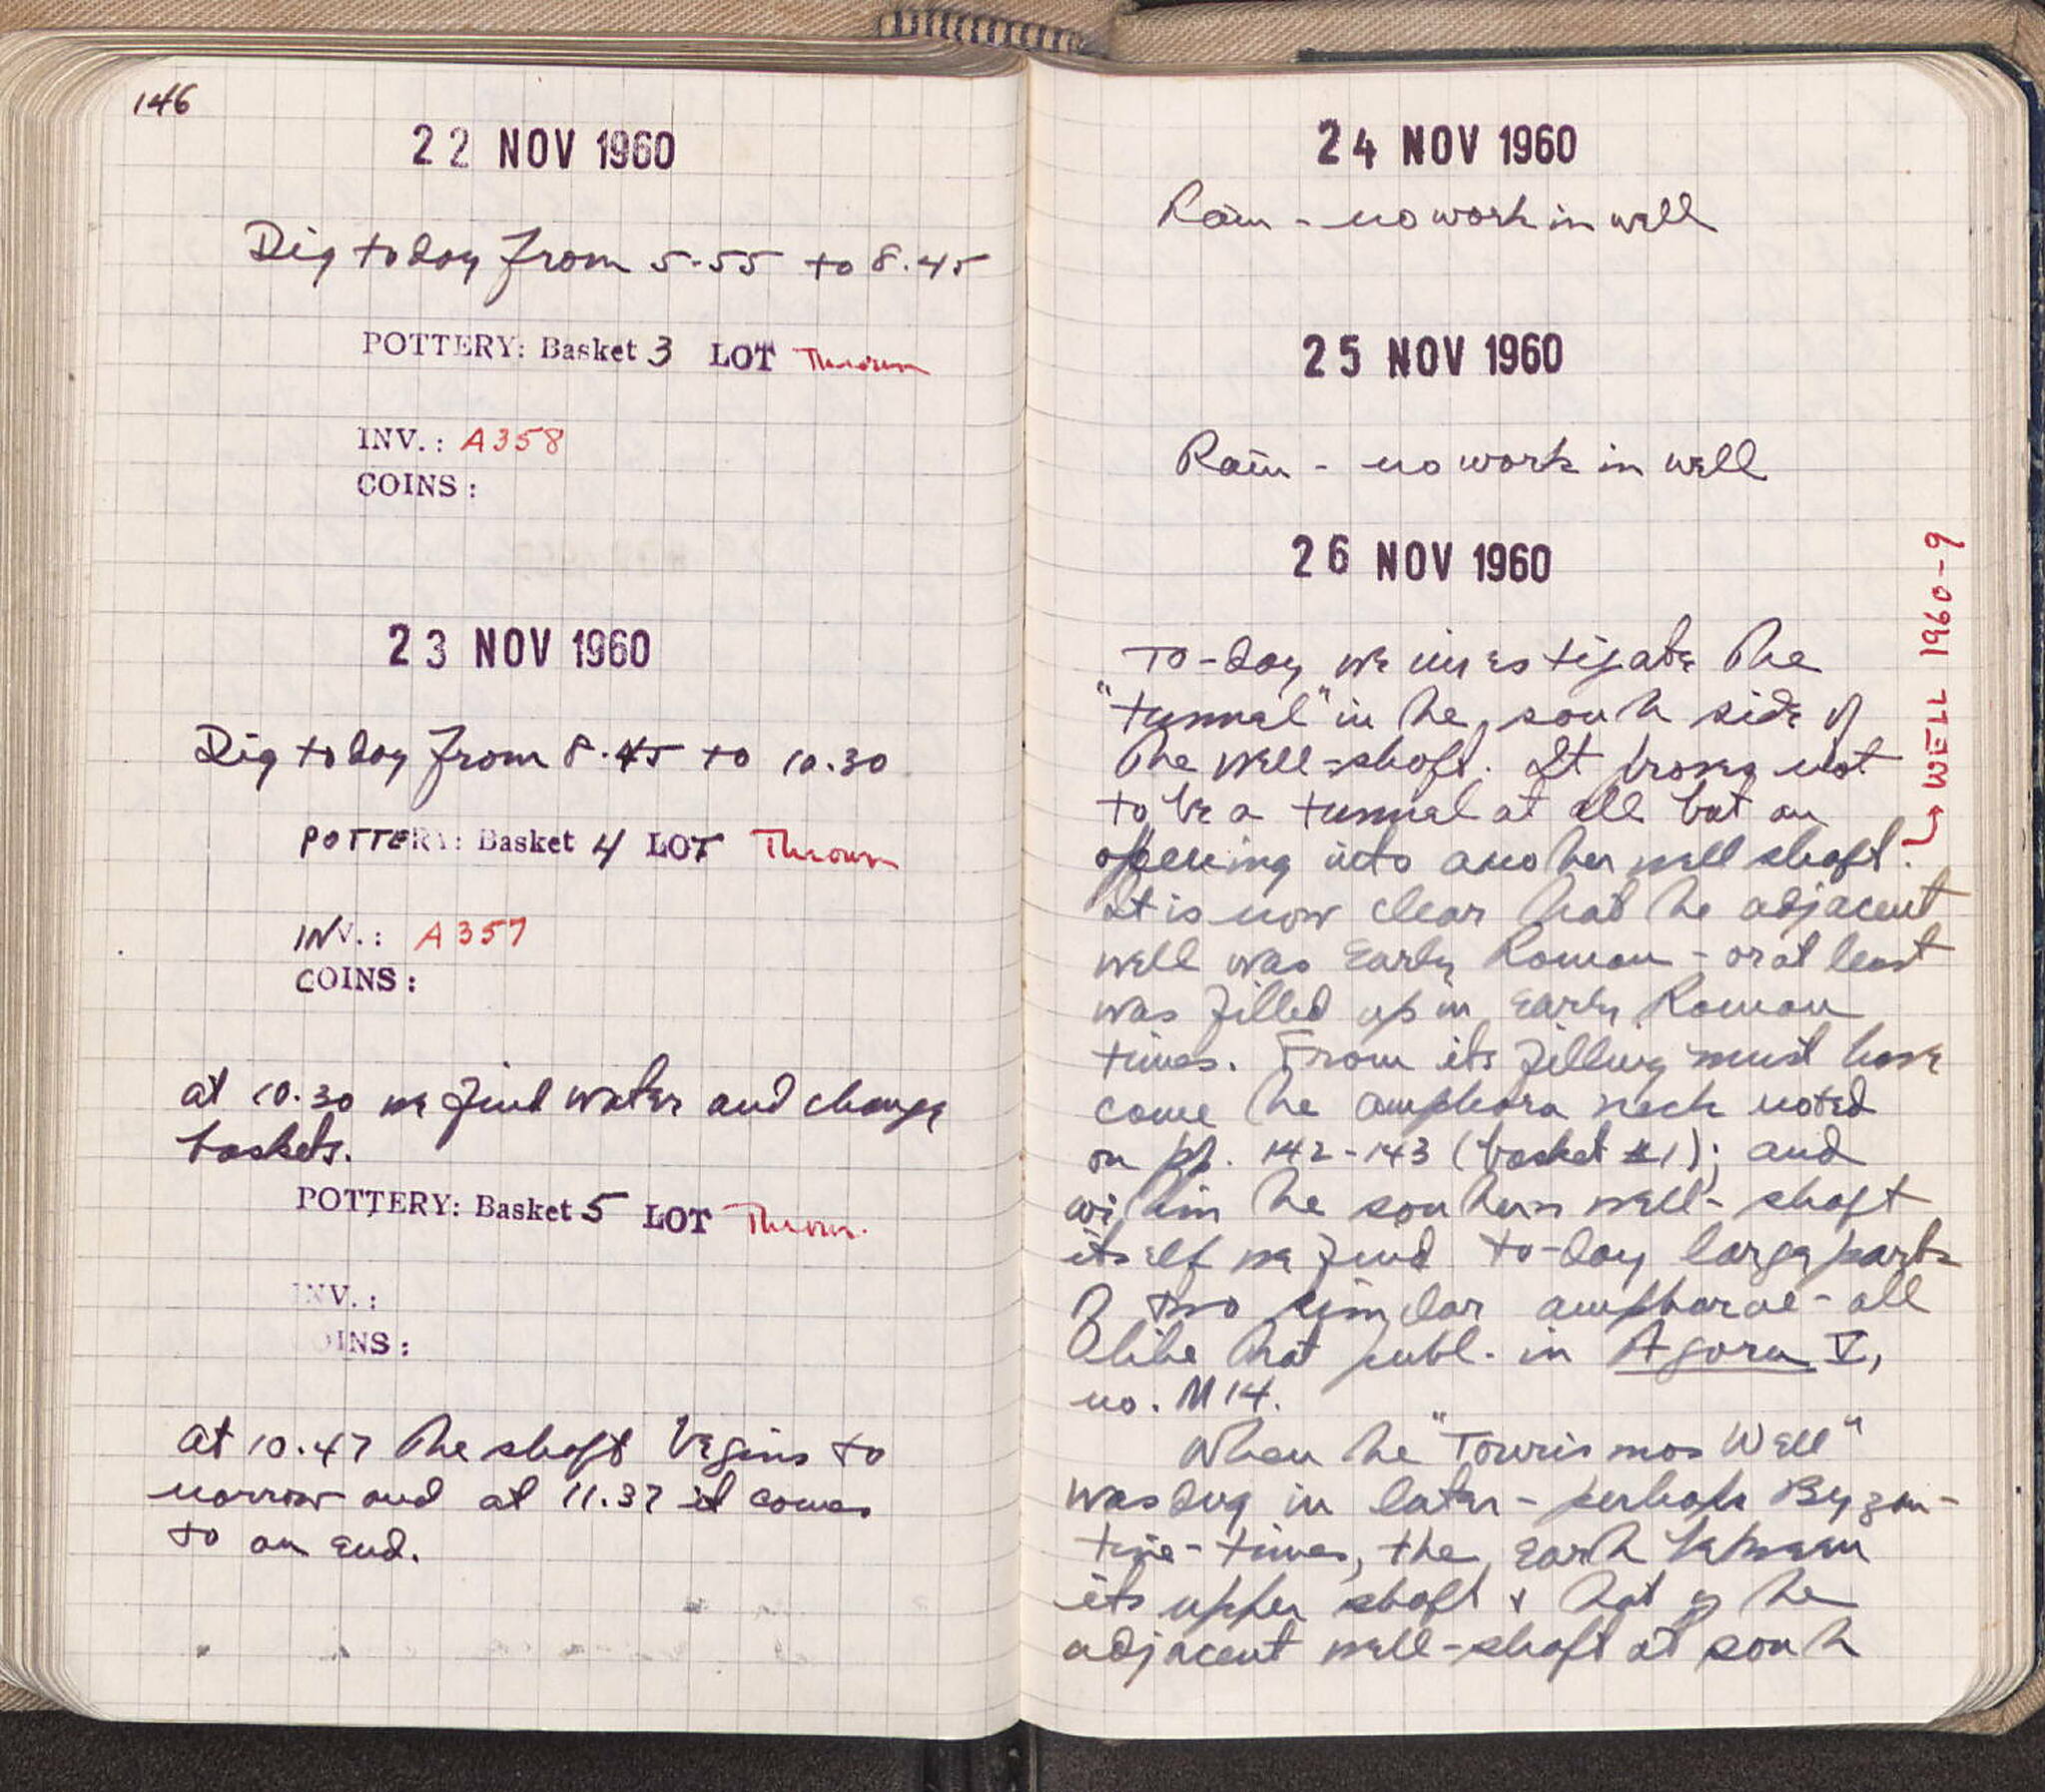 146
22 NOV 1960
Dig today from 5.55 to 8.45
POTTERY: Basket 3 LOT Thrown
INV.: A358
COINS:
23 NOV 1960
Dig today from 8.45 to 10.30
POTTERY: Basket 4 LOT Thrown
INV.: A357
COINS:
at 10.30 we find water and change
baskets.
POTTERY: Basket 5 LOT Thrown.
INV.:
COINS:
at 10.47 the shaft begins to
narrow and at 11.37 it comes
to an end.
24 NOV 1960
Rain - no work in well
25 NOV 1960
Rain - no work in well
26 NOV 1960
To-day we investigate the
"tunnel" in the south side of
the well-shaft. It proves not
to be a tunnel at all but an
opening into another well shaft.
→ WELL 1960-9
It is now clear that the adjacent
well was Early Roman - or at least
was filled up in Early Roman
times. From its filling must have
come the amphora neck noted
on pp. 142-143 (basket #1); and
within the southern well-shaft
itself we find to-day large parts
of two similar amphorae - all
like that publ. in Agora V,
no. M14.
When the "Tourismos Well"
was dug in later - perhaps Byzan-
tine - times, the earth between
its upper shaft & that of the
adjacent well-shaft at south